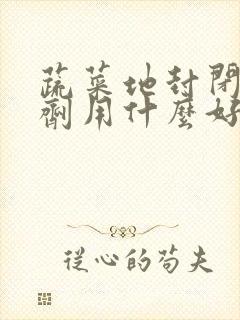 蔬菜地封閉
劑用什麼好
從心的苟夫